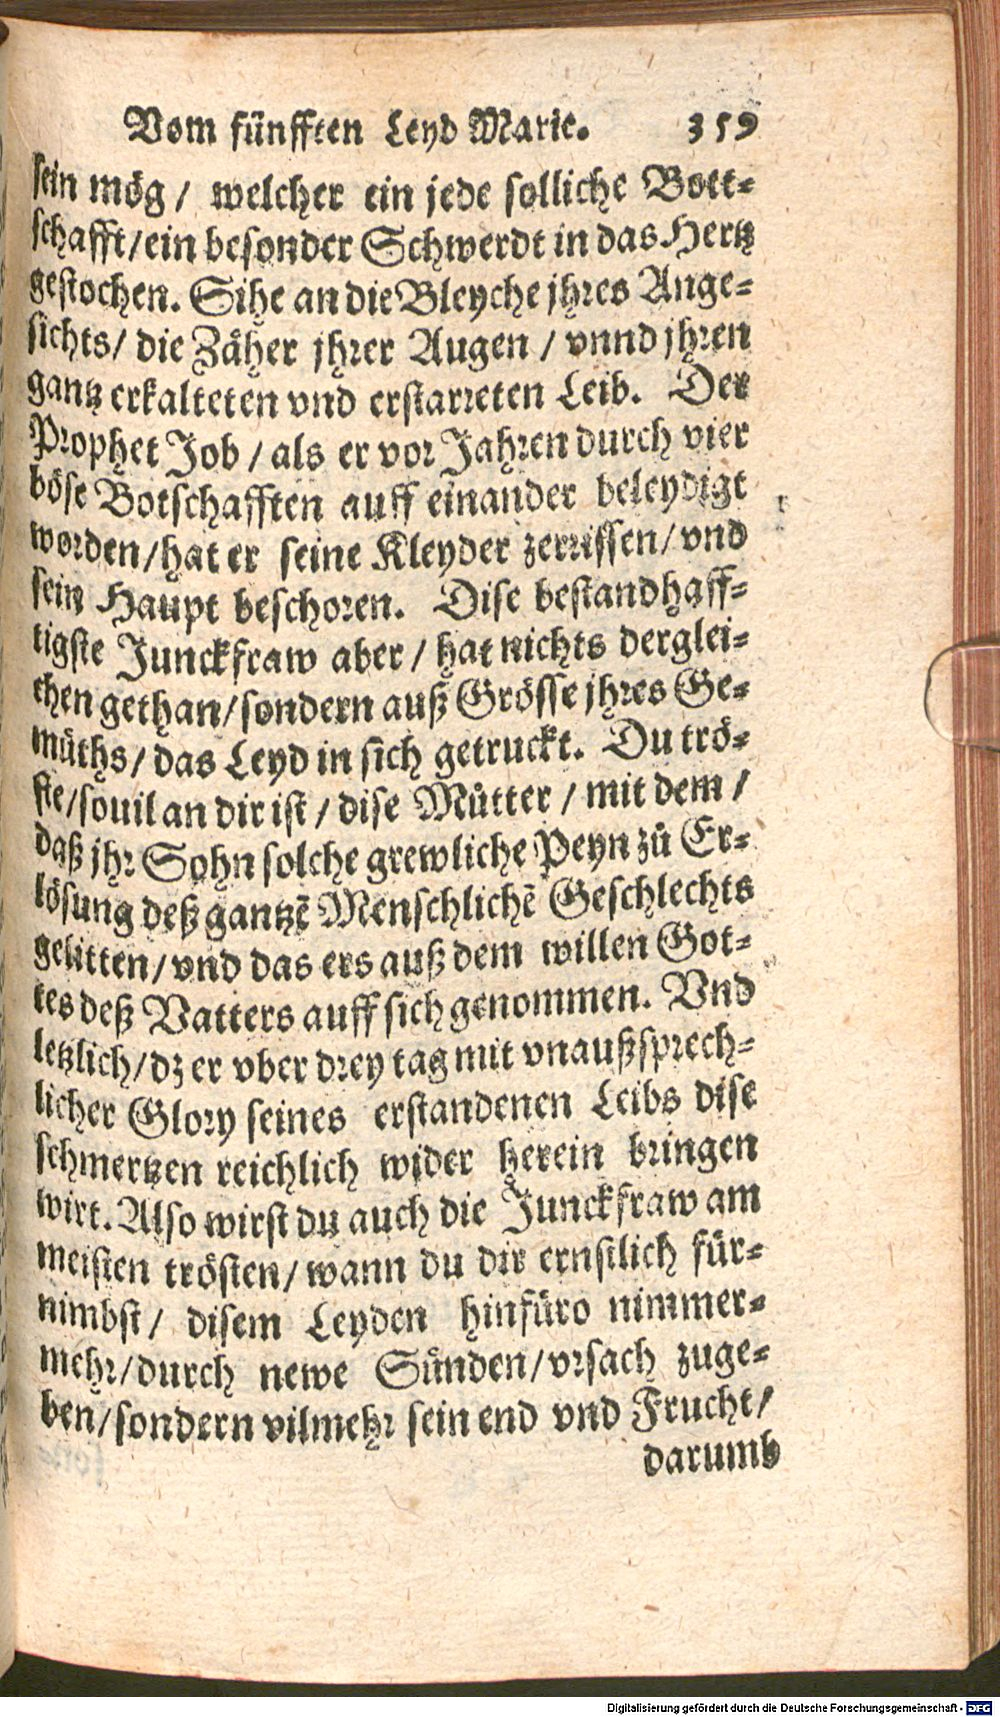 Vom fünfften Leyd Marie. 359
sein mög / welcher ein jede solliche Bott-
schafft / ein besonder Schwerdt in das Hertz
gestochen. Sihe an die Bleyche jhres Ange-
sichts / die Zäher jhrer Augen / vnnd jhren
gantz erkalteten vnd erstarreten Leib. Der
Prophet Job / als er vor Jahren durch vier
böse Botschafften auff einander beleydigt
worden / hat er seine Kleyder zerrissen / vnd
sein Haupt beschoren. Dise bestandhaff-
tigste Junckfraw aber / hat nichts derglei-
chen gethan / sondern auß Grösse jhres Ge-
müths / das Leyd in sich getruckt. Du trö-
ste / souil an dir ist / dise Mütter / mit dem /
daß jhr Sohn solche grewliche Peyn zů Er-
lösung deß gantzē Menschlichē Geschlechts
gelitten / vnd das ers auß dem willen Got-
tes deß Vatters auff sich genommen. Vnd
letzlich / dz er vber drey tag mit vnaußsprech-
licher Glory seines erstandenen Leibs dise
schmertzen reichlich wider herein bringen
wirt. Also wirst du auch die Junckfraw am
meisten trösten / wann du dir ernstlich für-
nimbst / disem Leyden hinfüro nimmer-
mehr / durch newe Sünden / vrsach zuge-
ben / sondern vilmehr sein end vnd Frucht /
darumb
Digitalisierung gefördert durch die Deutsche Forschungsgemeinschaft - DFG